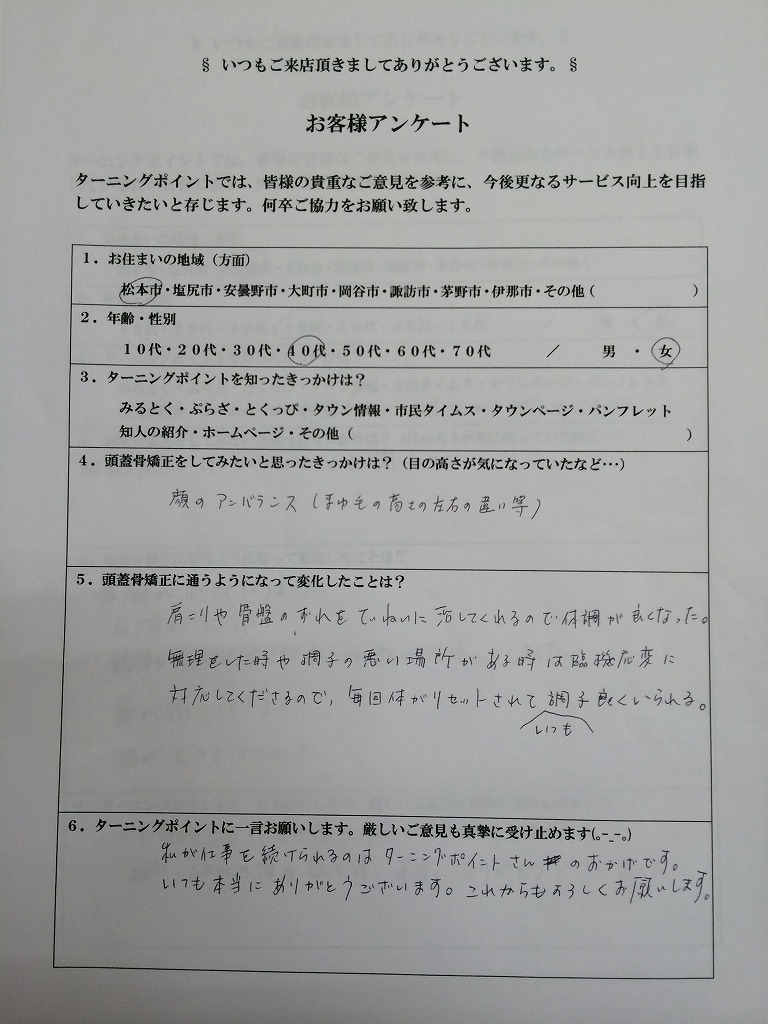 § いつもご来店頂きましてありがとうございます。§
お客様アンケート
ターニングポイントでは、皆様の貴重なご意見を参考に、今後更なるサービス向上を目指
していきたいと存じます。何卒ご協力をお願い致します。
1．お住まいの地域（方面）
松本市・塩尻市・安曇野市・大町市・岡谷市・諏訪市・茅野市・伊那市・その他（ ）
2．年齢・性別
10代・20代・30代・40代・50代・60代・70代 ／ 男 ・ 女
3．ターニングポイントを知ったきっかけは？
みるとく・ぷらざ・とくっぴ・タウン情報・市民タイムス・タウンページ・パンフレット
知人の紹介・ホームページ・その他（ ）
4．頭蓋骨矯正をしてみたいと思ったきっかけは？（目の高さが気になっていたなど…）
顔のアンバランス（まゆ毛の高さの左右の違い等）
5．頭蓋骨矯正に通うようになって変化したことは？
肩こりや骨盤のずれをていねいに治してくれるので体調が良くなった。
無理をした時や調子の悪い場所がある時は臨機応変に
対応してくださるので、毎回体がリセットされて調子良くいられる。
いつも
6．ターニングポイントに一言お願いします。厳しいご意見も真摯に受け止めます(｡-_-｡)
私が仕事を続けられるのはターニングポイントさんのおかげです。
いつも本当にありがとうございます。これからもよろしくお願いします。